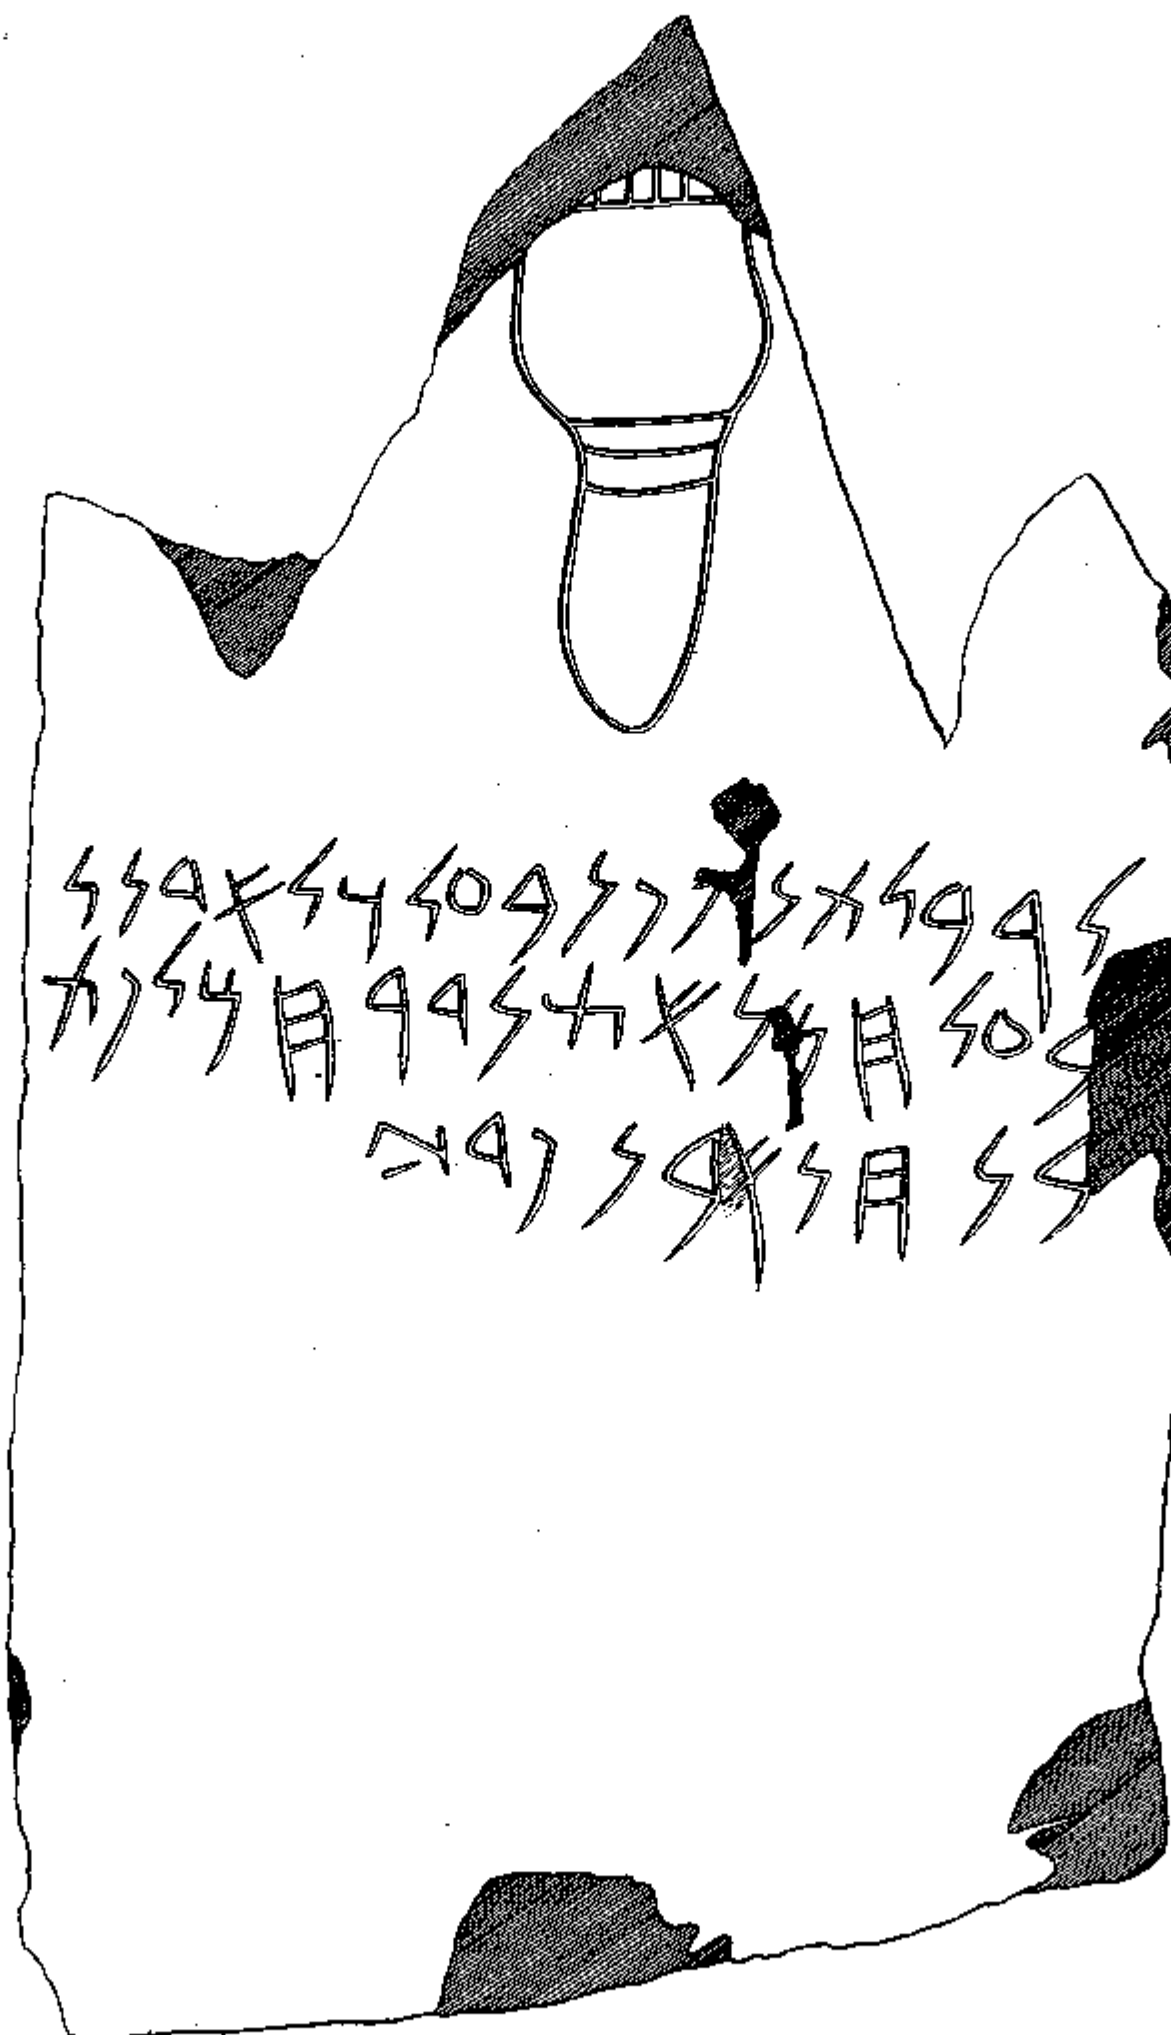 𐤋𐤓𐤁𐤋𐤕𐤍𐤕𐤐𐤍𐤁𐤏𐤋𐤅𐤋𐤀𐤃𐤍𐤋
𐤁𐤏𐤋𐤇𐤌𐤍𐤀𐤕𐤍𐤃𐤓𐤇𐤌𐤋𐤂𐤕
𐤁𐤍𐤇𐤍𐤀𐤁𐤍𐤂𐤃𐤉